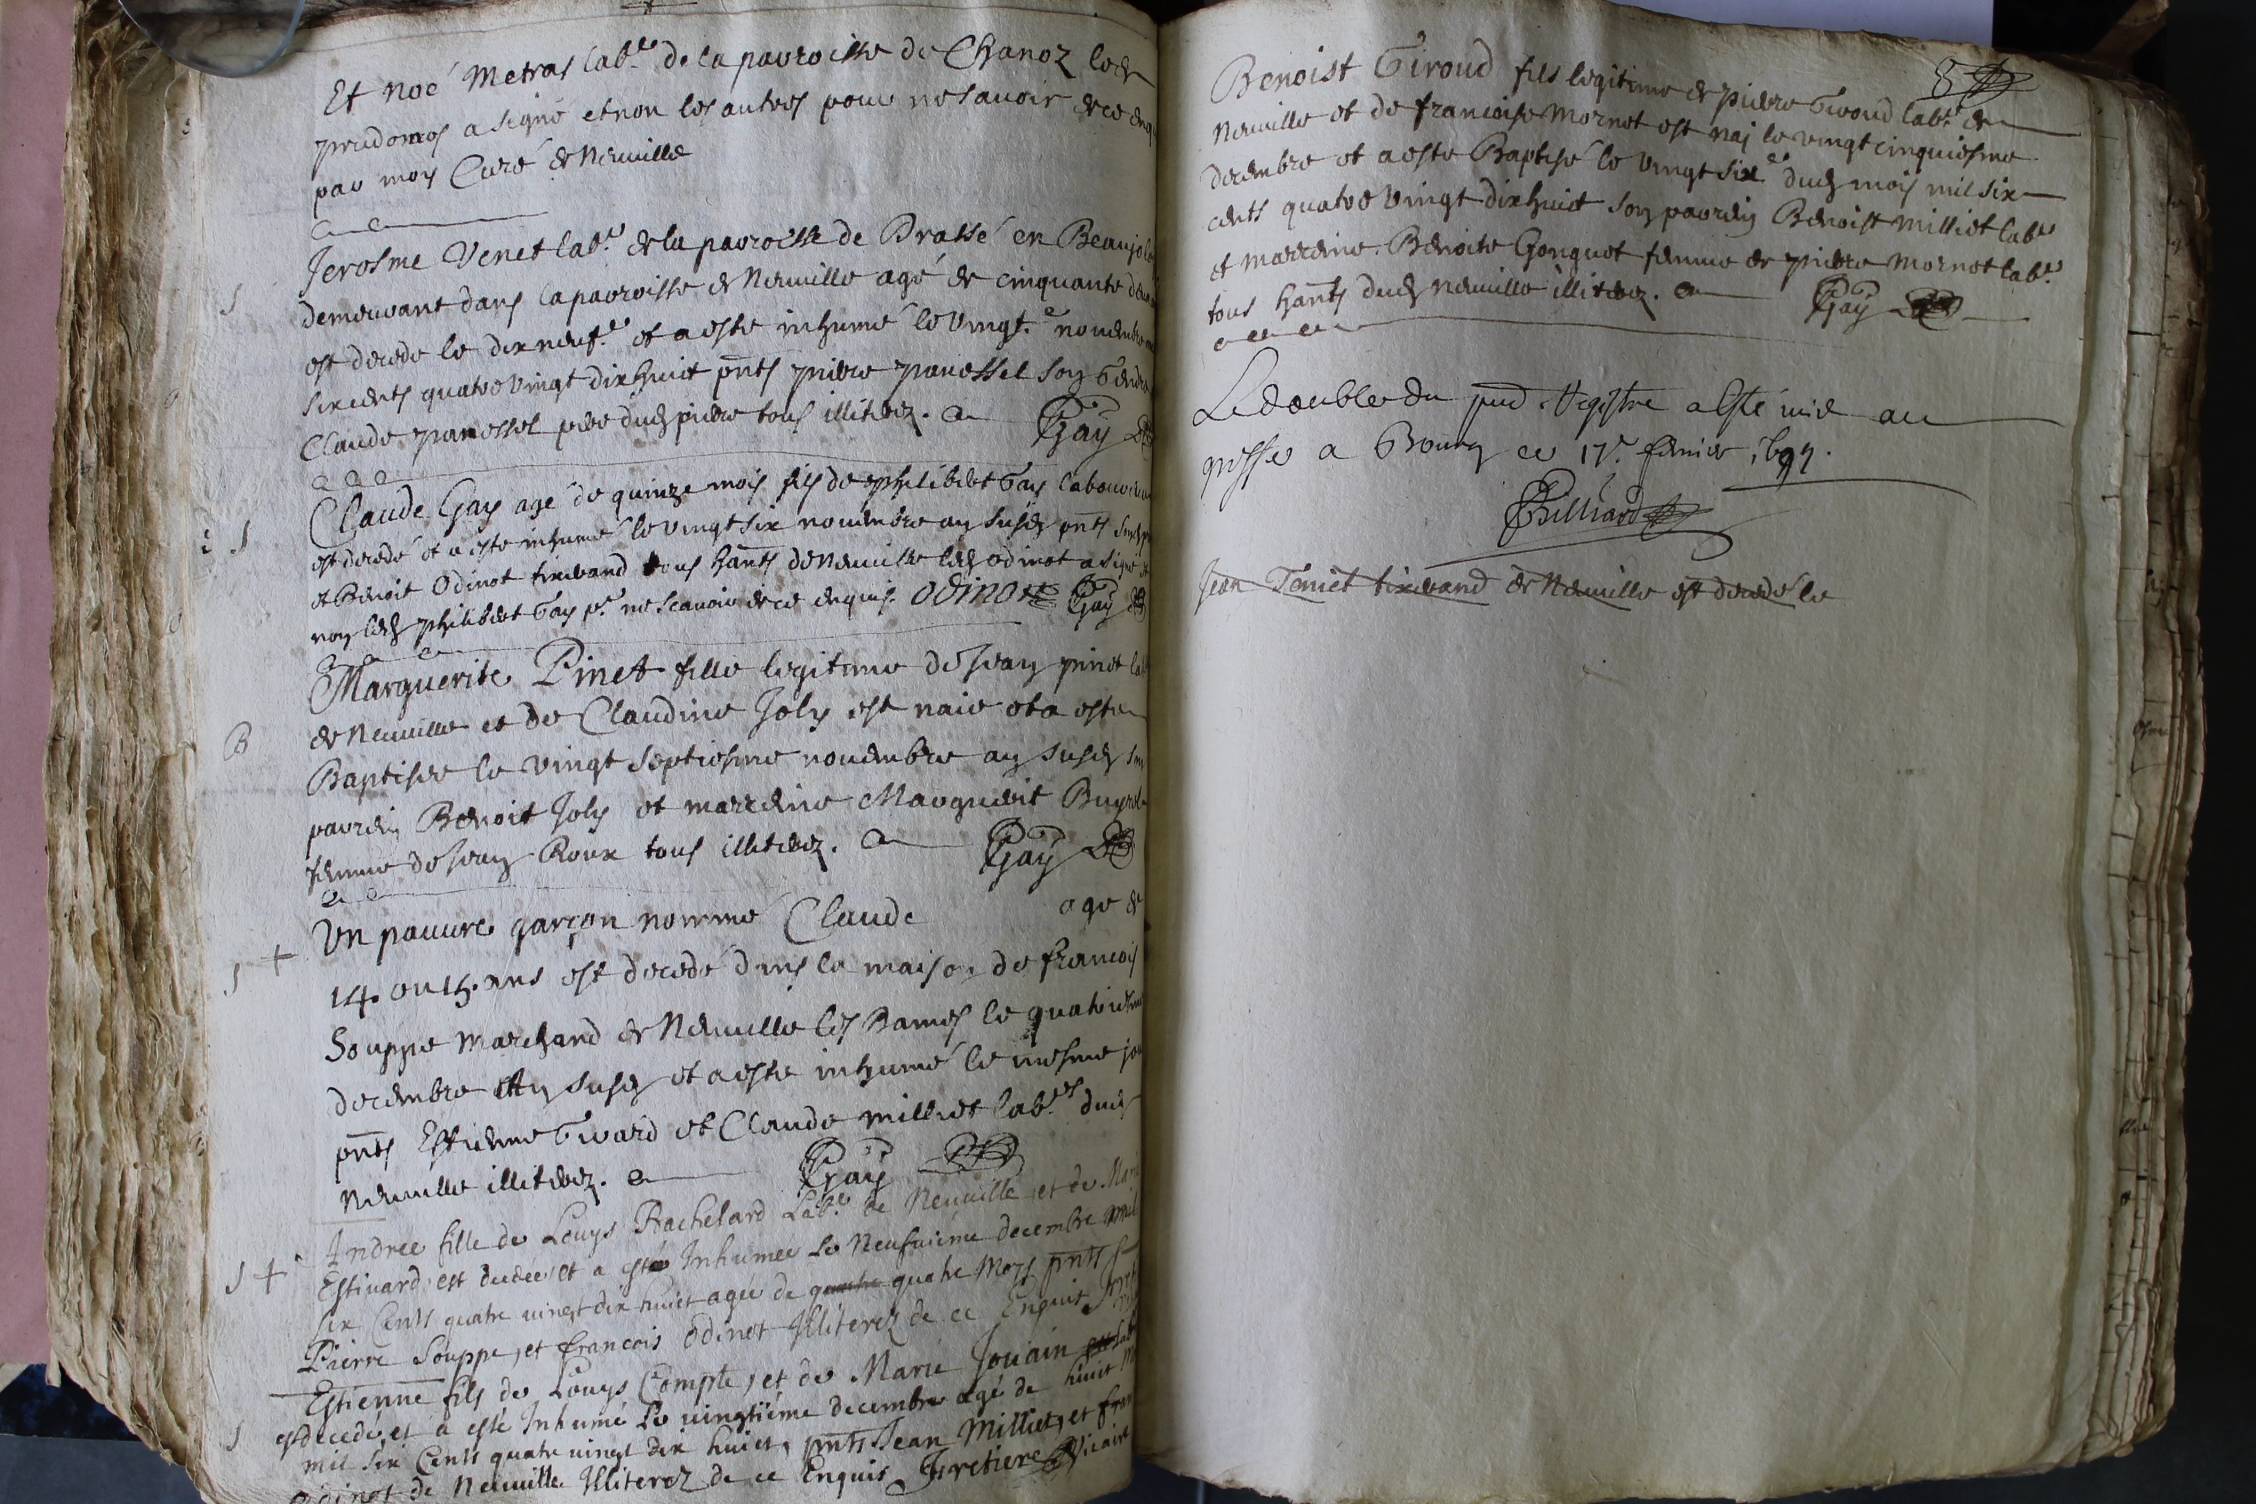 Et noé Metras lab.r de la parroisse de Chanoz led.
prudomes a signé et non les autres pour ne savoir de ce enq
par moy Curé de Neuville
Jerosme Venet lab.r de la parroisse de Brassé en Beaujol
demeurant dans la parroisse de Neuville agé de cinquante deux
est decedé le dix neuf.e et a esté inhumé le vingt.e novembre
six cents quatre vingt dix huict pnts pierre panessel son gendre
Claude panessel pere dud. pierre tous illiterez. Gay
S
Claude Gay agé de quinze mois fils de philibert Gay laboureur
est decedé et a esté inhumé le vingt six novembre an susd. pnts
et Benoit Odinot tixerand tous hants de Neuville led. odinot a signé et
non led. philibert Gay p.r ne scavoir de ce enquis. Odinot Gay
S
Marguerite Pinet fille legitime de Jean pinet lab
de Neuville et de Claudine Joly est naie et a esté
Baptisée le vingt septiesme novembre an susd. son
B
parrein Benoit Joly et marreine Marguerit
femme de Jean Roux tous illiterez. Gay
Un pauvre garçon nommé Claude agé de
S +
14. ou 15. ans est decedé dans la maison de francois
Souppe marchand de Neuville les Dames le quatriesme
decembre an susd. et a esté inhumé le mesme jou
pnts Estienne Girard et Claude milliet lab.rs dud.
Neuville illiterez. Gay
Andree fille de Louys Bachelard Lab.r de Neuville, et de Marie
S +
Estivard, est decedée, et a esté Inhumée Le Neufvieme decembre mil
six Cents quatre vingt dix huict agée de quatre quatre Moys pnts
Pierre Souppe, et francois Odinet Illiterez de ce Enquis
Estienne fils de Louys Compte, et de Marie Jouain
S
est decedé, et a esté Inhumé Le vingtiéme decembre agé de huict
mil six Cents quatre vingt dix huict, pnts Jean Milliet, et fran
Odinet de Neuville Illiterez de ce Enquis Fretiere Vicaire
8
Benoist Giroud fils legitime de pierre Giroud lab.r de
Neuville et de francoise Mornet est nai le vingt cinquiesme
decembre et a esté Baptisé le vingt six.e dud. mois mil six
cents quatre vingt dix huict son parrein Benoist Milliet lab.r
et marreine Benoite Gonguet femme de pierre Mornet lab.r
tous hants dud. Neuville illiterez. Gay
Le double du pnd Regstre a Esté mis au
greffe a Bourg ce 17.e fevrier 1699.
Billiard
Jean Teniet tixerand de Neuville est decedé le